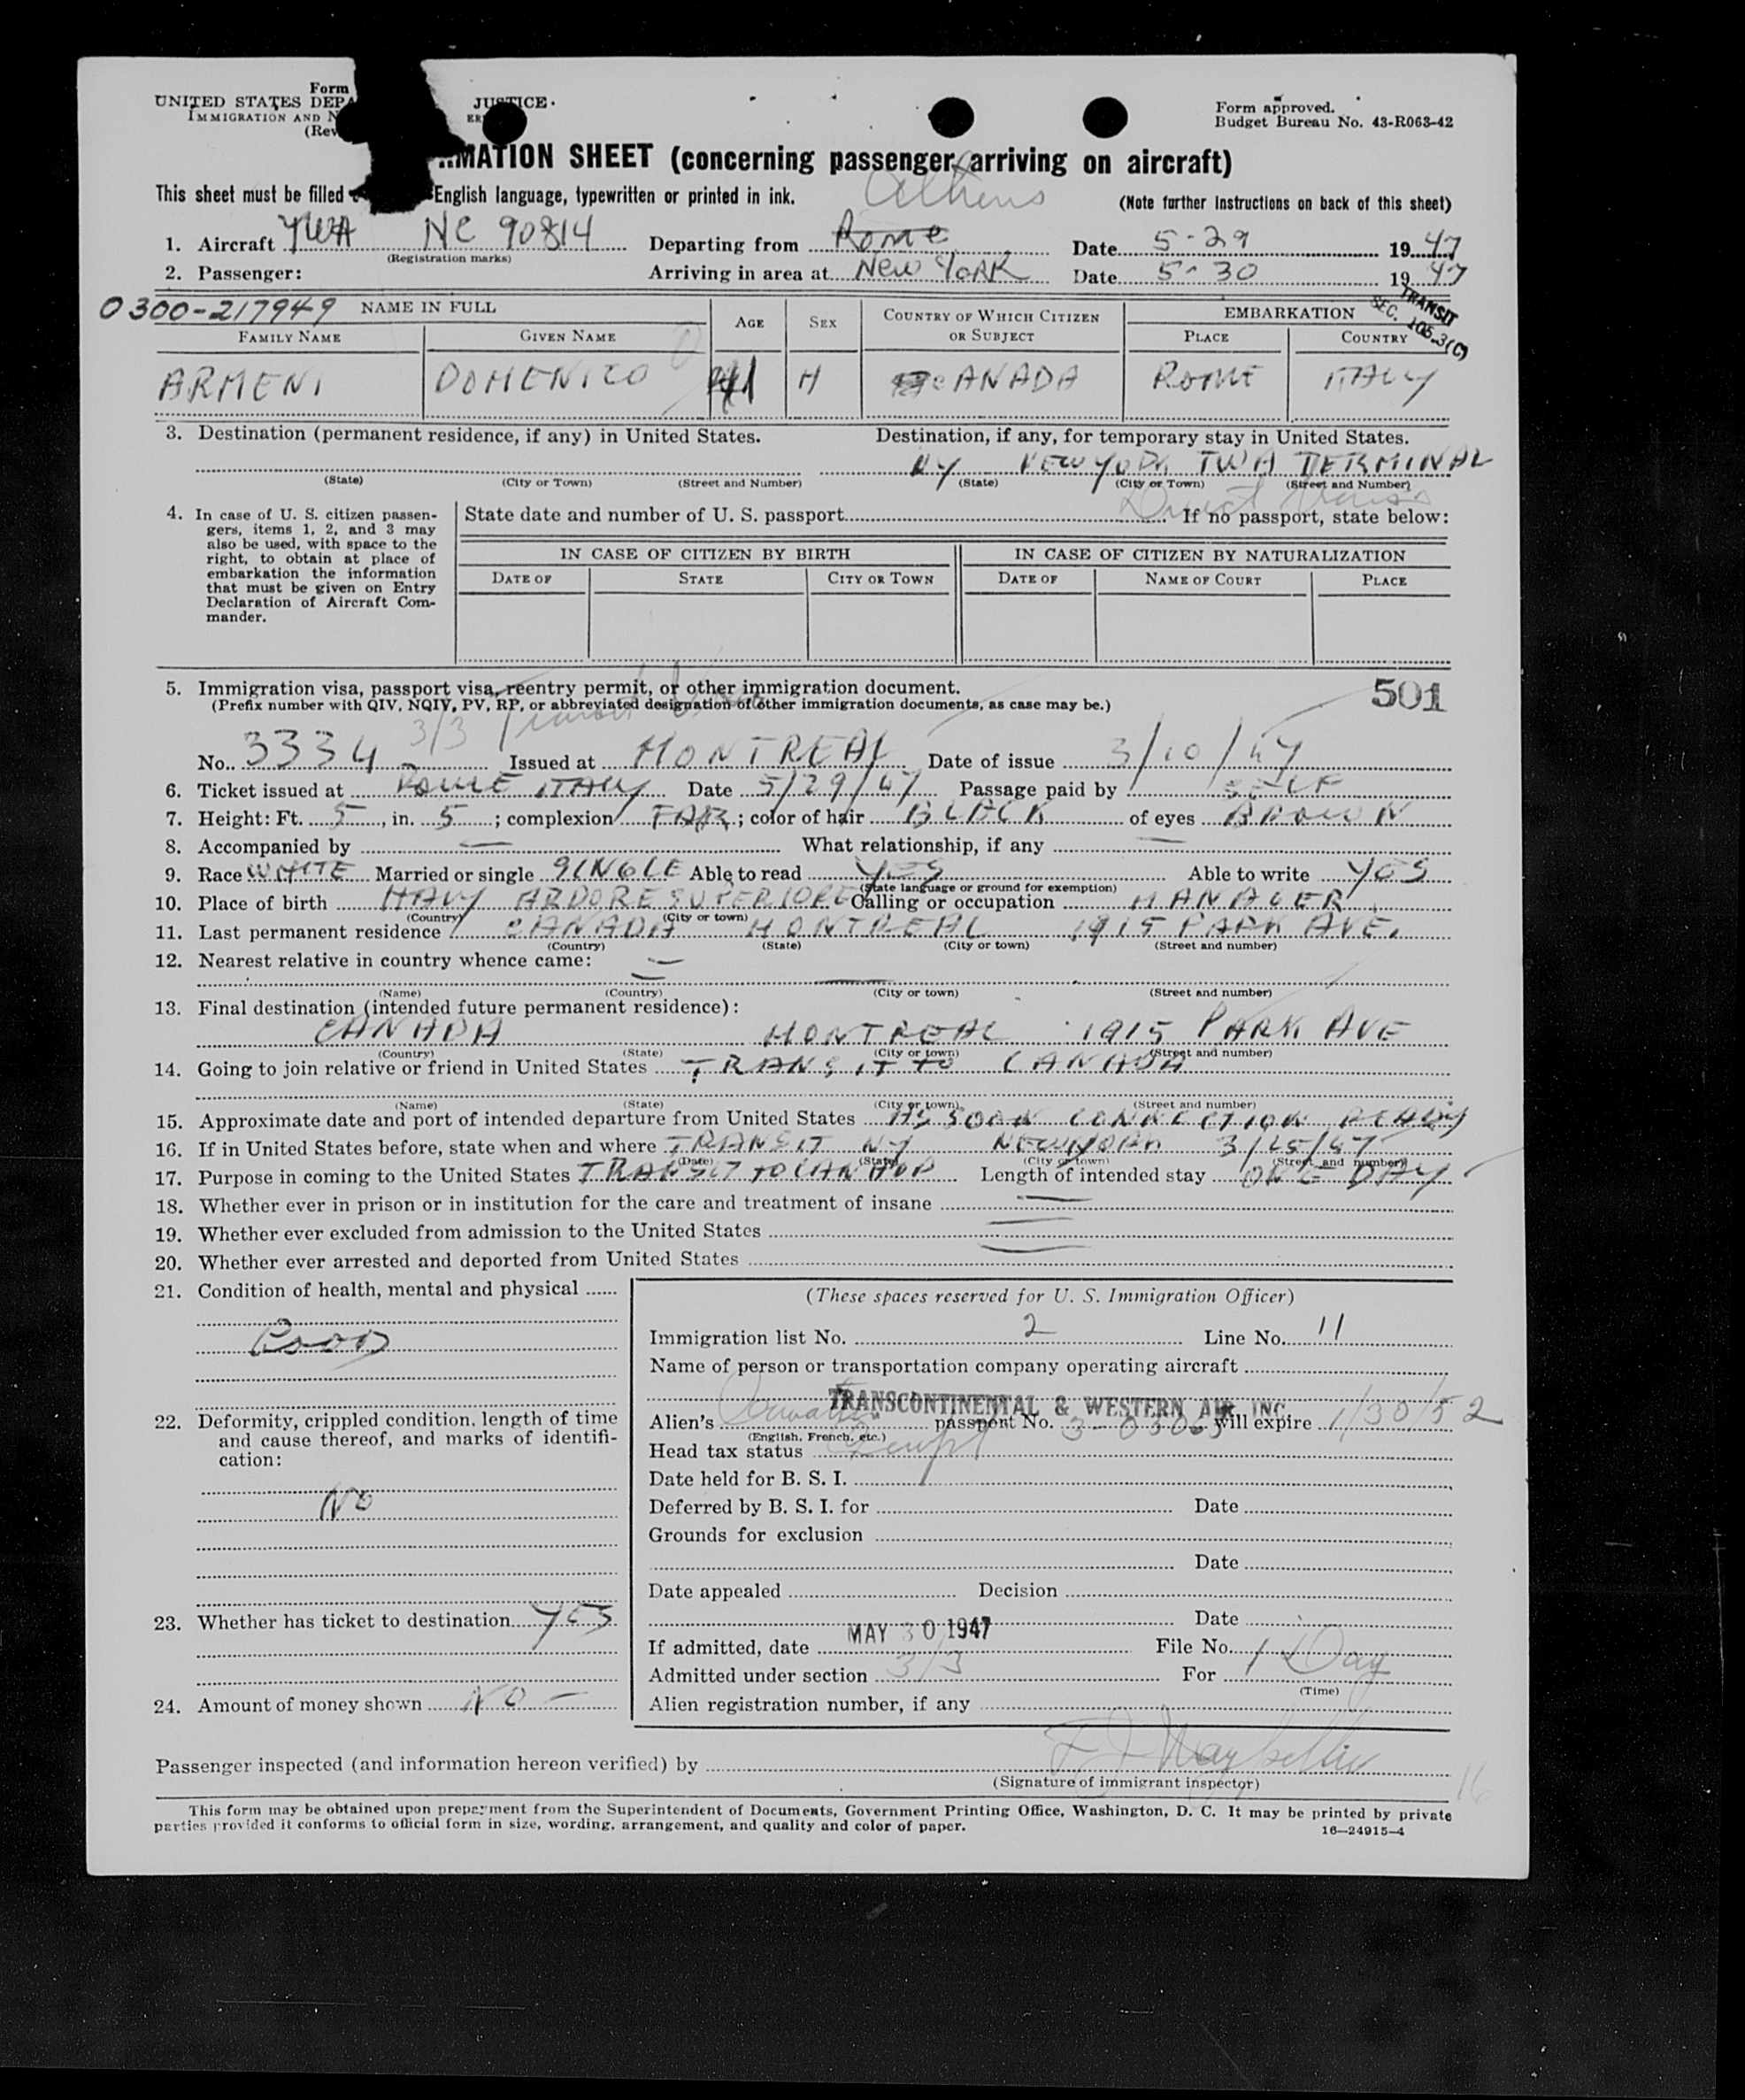 Form
UNITED STATES DEPA JUSTICE
IMMIGRATION AND N
(Rev
MATION SHEET (concerning passenger arriving on aircraft)
Form approved.
Budget Bureau No. 43-R063-42
This sheet must be filled English language, typewritten or printed in ink.
Athens
(Note further instructions on back of this sheet)
1. Aircraft TWA NC 90814 Departing from Rome Date 5-29 1947
(Registration marks)
2. Passenger: Arriving in area at New York Date 5-30 1947
0300-217949 NAME IN FULL AGE SEX COUNTRY OF WHICH CITIZEN OR SUBJECT EMBARKATION
TRANSIT
SEC. 105.3(C)
FAMILY NAME GIVEN NAME PLACE COUNTRY
ARMENI DOMENICO 41 M CANADA ROME ITALY
3. Destination (permanent residence, if any) in United States. Destination, if any, for temporary stay in United States.
NY NEW YORK TWA TERMINAL
(State) (City or Town) (Street and Number) (State) (City or Town) (Street and Number)
Direct Transit
4. In case of U. S. citizen passen-
gers, items 1, 2, and 3 may
also be used, with space to the
right, to obtain at place of
embarkation the information
that must be given on Entry
Declaration of Aircraft Com-
mander.
State date and number of U. S. passport If no passport, state below:
IN CASE OF CITIZEN BY BIRTH IN CASE OF CITIZEN BY NATURALIZATION
DATE OF STATE CITY OR TOWN DATE OF NAME OF COURT PLACE
5. Immigration visa, passport visa, reentry permit, or other immigration document.
(Prefix number with QIV, NQIV, PV, RP, or abbreviated designation of other immigration documents, as case may be.)
501
3/3 Transit
No. 3334 Issued at MONTREAL Date of issue 3/10/47
6. Ticket issued at ROME ITALY Date 5/29/47 Passage paid by SELF
7. Height: Ft. 5, in. 5; complexion FAIR; color of hair BLACK of eyes BROWN
8. Accompanied by — What relationship, if any —
9. Race WHITE Married or single SINGLE Able to read YES Able to write YES
(State language or ground for exemption)
10. Place of birth ITALY ARDORE SUPERIORE Calling or occupation MANAGER
(Country) (City or town)
11. Last permanent residence CANADA MONTREAL 1915 PARK AVE.
(Country) (State) (City or town) (Street and number)
12. Nearest relative in country whence came: —
(Name) (Country) (City or town) (Street and number)
13. Final destination (intended future permanent residence):
CANADA MONTREAL 1915 PARK AVE
(Country) (State) (City or town) (Street and number)
14. Going to join relative or friend in United States TRANSIT TO CANADA
(Name) (State) (City or town) (Street and number)
15. Approximate date and port of intended departure from United States AS SOON CONNECTION READY
16. If in United States before, state when and where TRANSIT NY NEW YORK 3/25/47
(Date) (State) (City or town) (Street and number)
17. Purpose in coming to the United States TRANSIT TO CANADA Length of intended stay ONE DAY
18. Whether ever in prison or in institution for the care and treatment of insane —
19. Whether ever excluded from admission to the United States —
20. Whether ever arrested and deported from United States —
21. Condition of health, mental and physical
GOOD
22. Deformity, crippled condition, length of time
and cause thereof, and marks of identifi-
cation:
NO
23. Whether has ticket to destination YES
24. Amount of money shown NO —
(These spaces reserved for U. S. Immigration Officer)
Immigration list No. 2 Line No. 11
Name of person or transportation company operating aircraft
TRANSCONTINENTAL & WESTERN AIR, INC.
Alien's passport No. 3-03063 will expire 1/30/52
(English, French, etc.)
Head tax status Exempt
Date held for B. S. I.
Deferred by B. S. I. for Date
Grounds for exclusion
Date
Date appealed Decision
Date
If admitted, date MAY 30 1947 File No.
Admitted under section 3/3 For 1 Day
(Time)
Alien registration number, if any
Passenger inspected (and information hereon verified) by
(Signature of immigrant inspector)
This form may be obtained upon prepayment from the Superintendent of Documents, Government Printing Office, Washington, D. C. It may be printed by private
parties provided it conforms to official form in size, wording, arrangement, and quality and color of paper.
16—24915-4